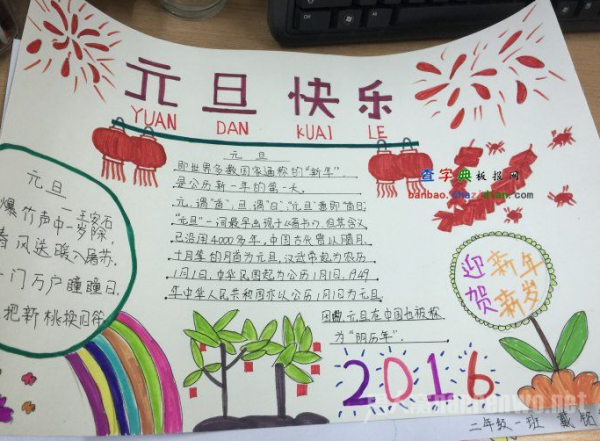 元旦快乐
YUAN DAN KUAI LE
元旦
王安石
爆竹声中一岁除,
春风送暖入屠苏.
门万户曈曈日.
把新桃换旧符
元旦
即世界多数国家通称的“新年”,
是公历新一年的第一天。
元,谓“首”,旦,谓“日”,“元旦”意即“首日”
“元旦”一词最早出现于《晋书》,但其含义
已沿用4000多年,中国古代曾以腊月、
十月等的月首为元旦,汉武帝起为农历
1月1日,中华民国起为公历1月1日,1949
年中华人民共和国亦以公历1月1日为元旦,
元旦在中国也被称
为“阳历年”.
查字典板报网
banbao.chazidian.com
迎新年
贺新岁
2016
二年级一班 戴